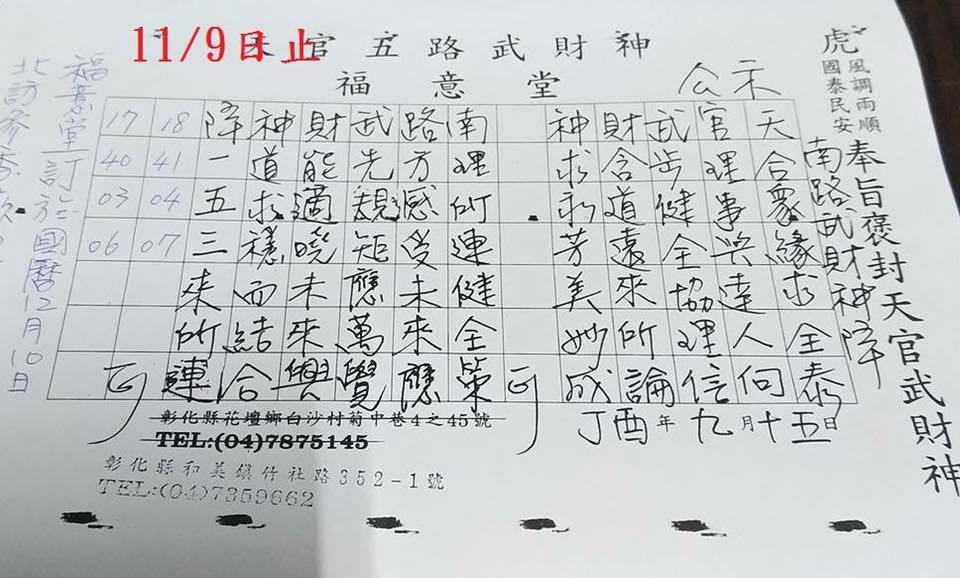 11/9日止
天官五路武財神
福意堂
公示
虎
風調雨順
國泰民安
奉旨褒封天官武財神
南路武財神降
天合眾緣求全泰
官理事興達人何
武步健全協理信
財含道遠來所論
神求永芳美妙成
南理所運健全策
路方感受未來應
武先觀矩應萬覺
財能適曉未來興
神道求穩而結合
降一五三來所連
18 41 04 07
17 40 03 06
丁酉年九月十五日
彰化縣花壇鄉白沙村菊中巷4之45號
TEL:(04)7875145
彰化縣和美鎮竹社路352-1號
TEL:(04)7359662
福意堂訂於國曆12月10日
北訪參香